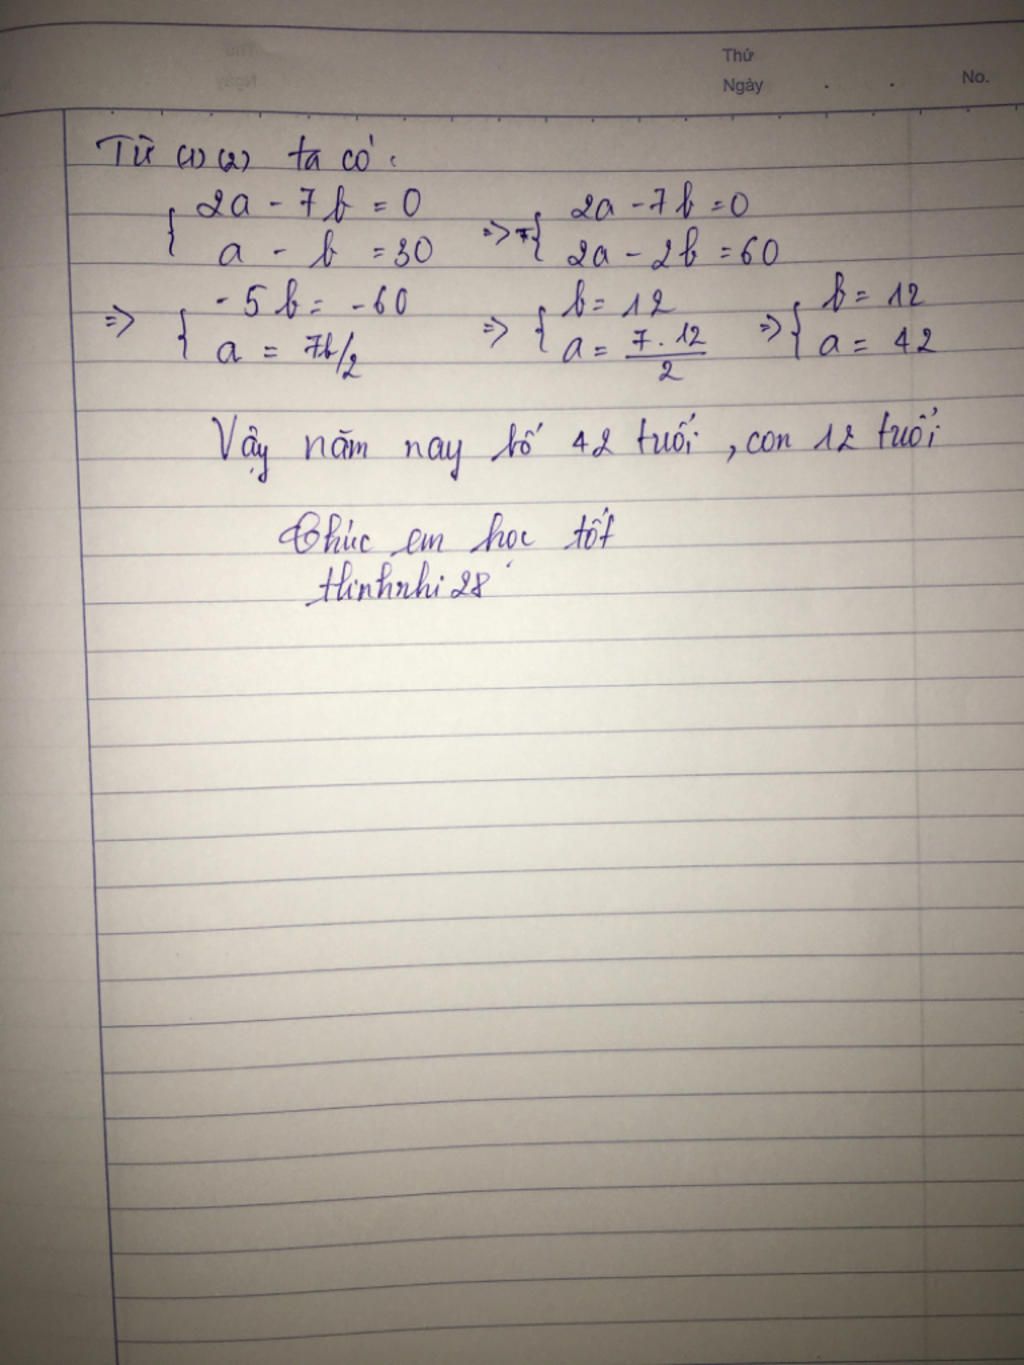 Thứ
Ngày . . No.
Từ (1)(2) ta có:
{ 2a - 7b = 0 => { 2a - 7b = 0
a - b = 30 2a - 2b = 60
=> { -5b = -60 => { b = 12 => { b = 12
a = 7b/2 a = 7.12/2 a = 42
Vậy năm nay bố 42 tuổi, con 12 tuổi
Chúc em học tốt
thinhnhi28